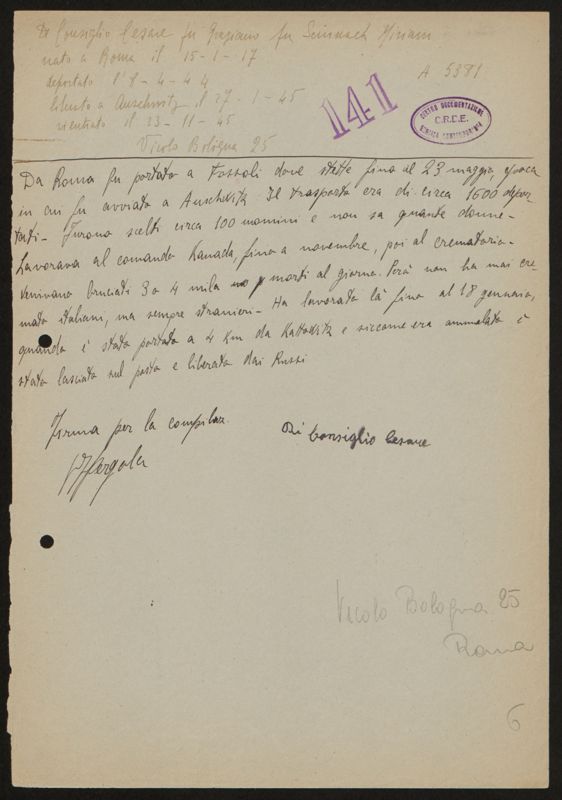 Di Consiglio Cesare fu Graziano fu Sciunnach Miriam
nato a Roma il 15-1-17
deportato l'8-4-44
A 5381
liberato a Auschwitz il 27-1-45
rientrato il 23-11-45
Vicolo Bologna 25
141
CENTRO DOCUMENTAZIONE
C.R.D.E.
EBRAICA CONTEMPORANEA
Da Roma fu portato a Fossoli dove stette fino al 23 maggio, epoca
in cui fu avviato a Auschwitz. Il trasporto era di circa 1600 depor-
tati - Furono scelti circa 100 uomini e non sa quante donne -
Lavorava al comando Kanada, fino a novembre, poi al crematorio -
Venivano bruciati 3 o 4 mila morti al giorno. Però non ha mai cre-
mato italiani, ma sempre stranieri - Ha lavorato là fino al 18 gennaio,
quando è stato portato a 4 Km da Kattowitz e siccome era ammalato è
stato lasciato sul posto e liberato dai Russi
Firma per la compilaz.
Di Consiglio Cesare
Vicolo Bologna 25
Roma
6